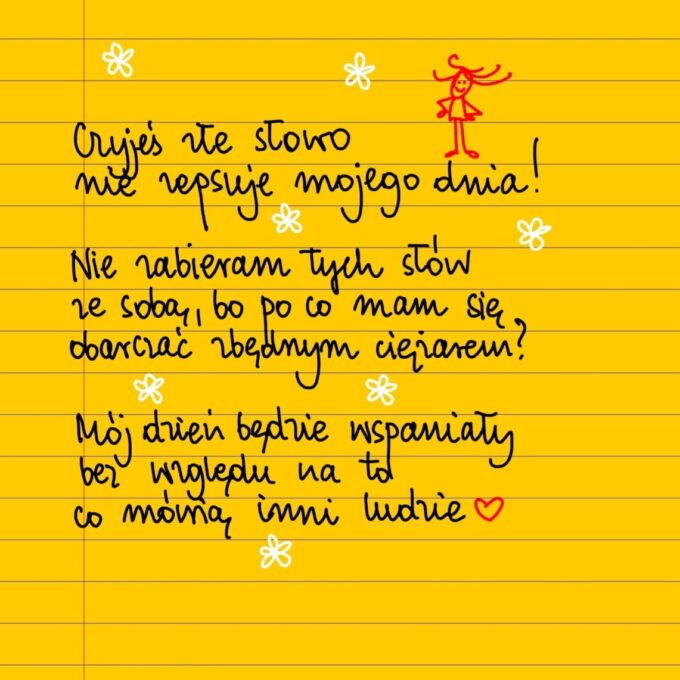 Czyjeś złe słowo
nie zepsuje mojego dnia!
Nie zabieram tych słów
ze sobą, bo po co mam się
obarczać zbędnym ciężarem?
Mój dzień będzie wspaniały
bez względu na to
co mówią inni ludzie